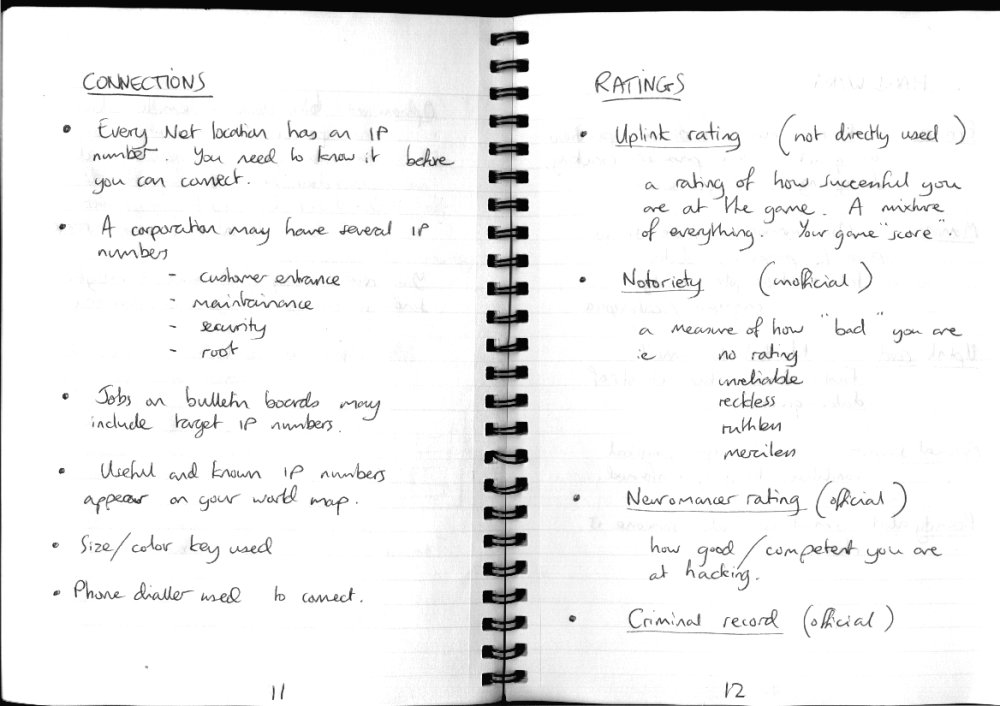 CONNECTIONS
• Every Net location has an IP
number. You need to know it before
you can connect.
• A corporation may have several IP
numbers
- customer entrance
- maintainance
- security
- root
• Jobs on bulletin boards may
include target IP numbers.
• Useful and known IP numbers
appear on your world map.
• Size/color key used
• Phone dialler used to connect.
11
RATINGS
• Uplink rating (not directly used)
a rating of how successful you
are at the game. A mixture
of everything. Your game "score"
• Notoriety (unofficial)
a measure of how "bad" you are
ie no rating
unreliable
reckless
ruthless
merciless
• Neuromancer rating (official)
how good/competent you are
at hacking.
• Criminal record (official)
12